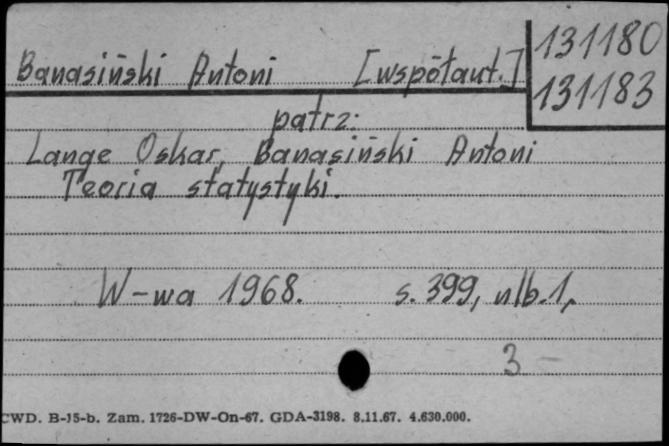 Banasiński Antoni [współaut.]
131180
131183
patrz:
Lange Oskar, Banasiński Antoni
Teoria statystyki.
W-wa 1968. s. 399, nlb. 1,
3 -
CWD. B-15-b. Zam. 1726-DW-On-67. GDA-3198. 8.11.67. 4.630.000.